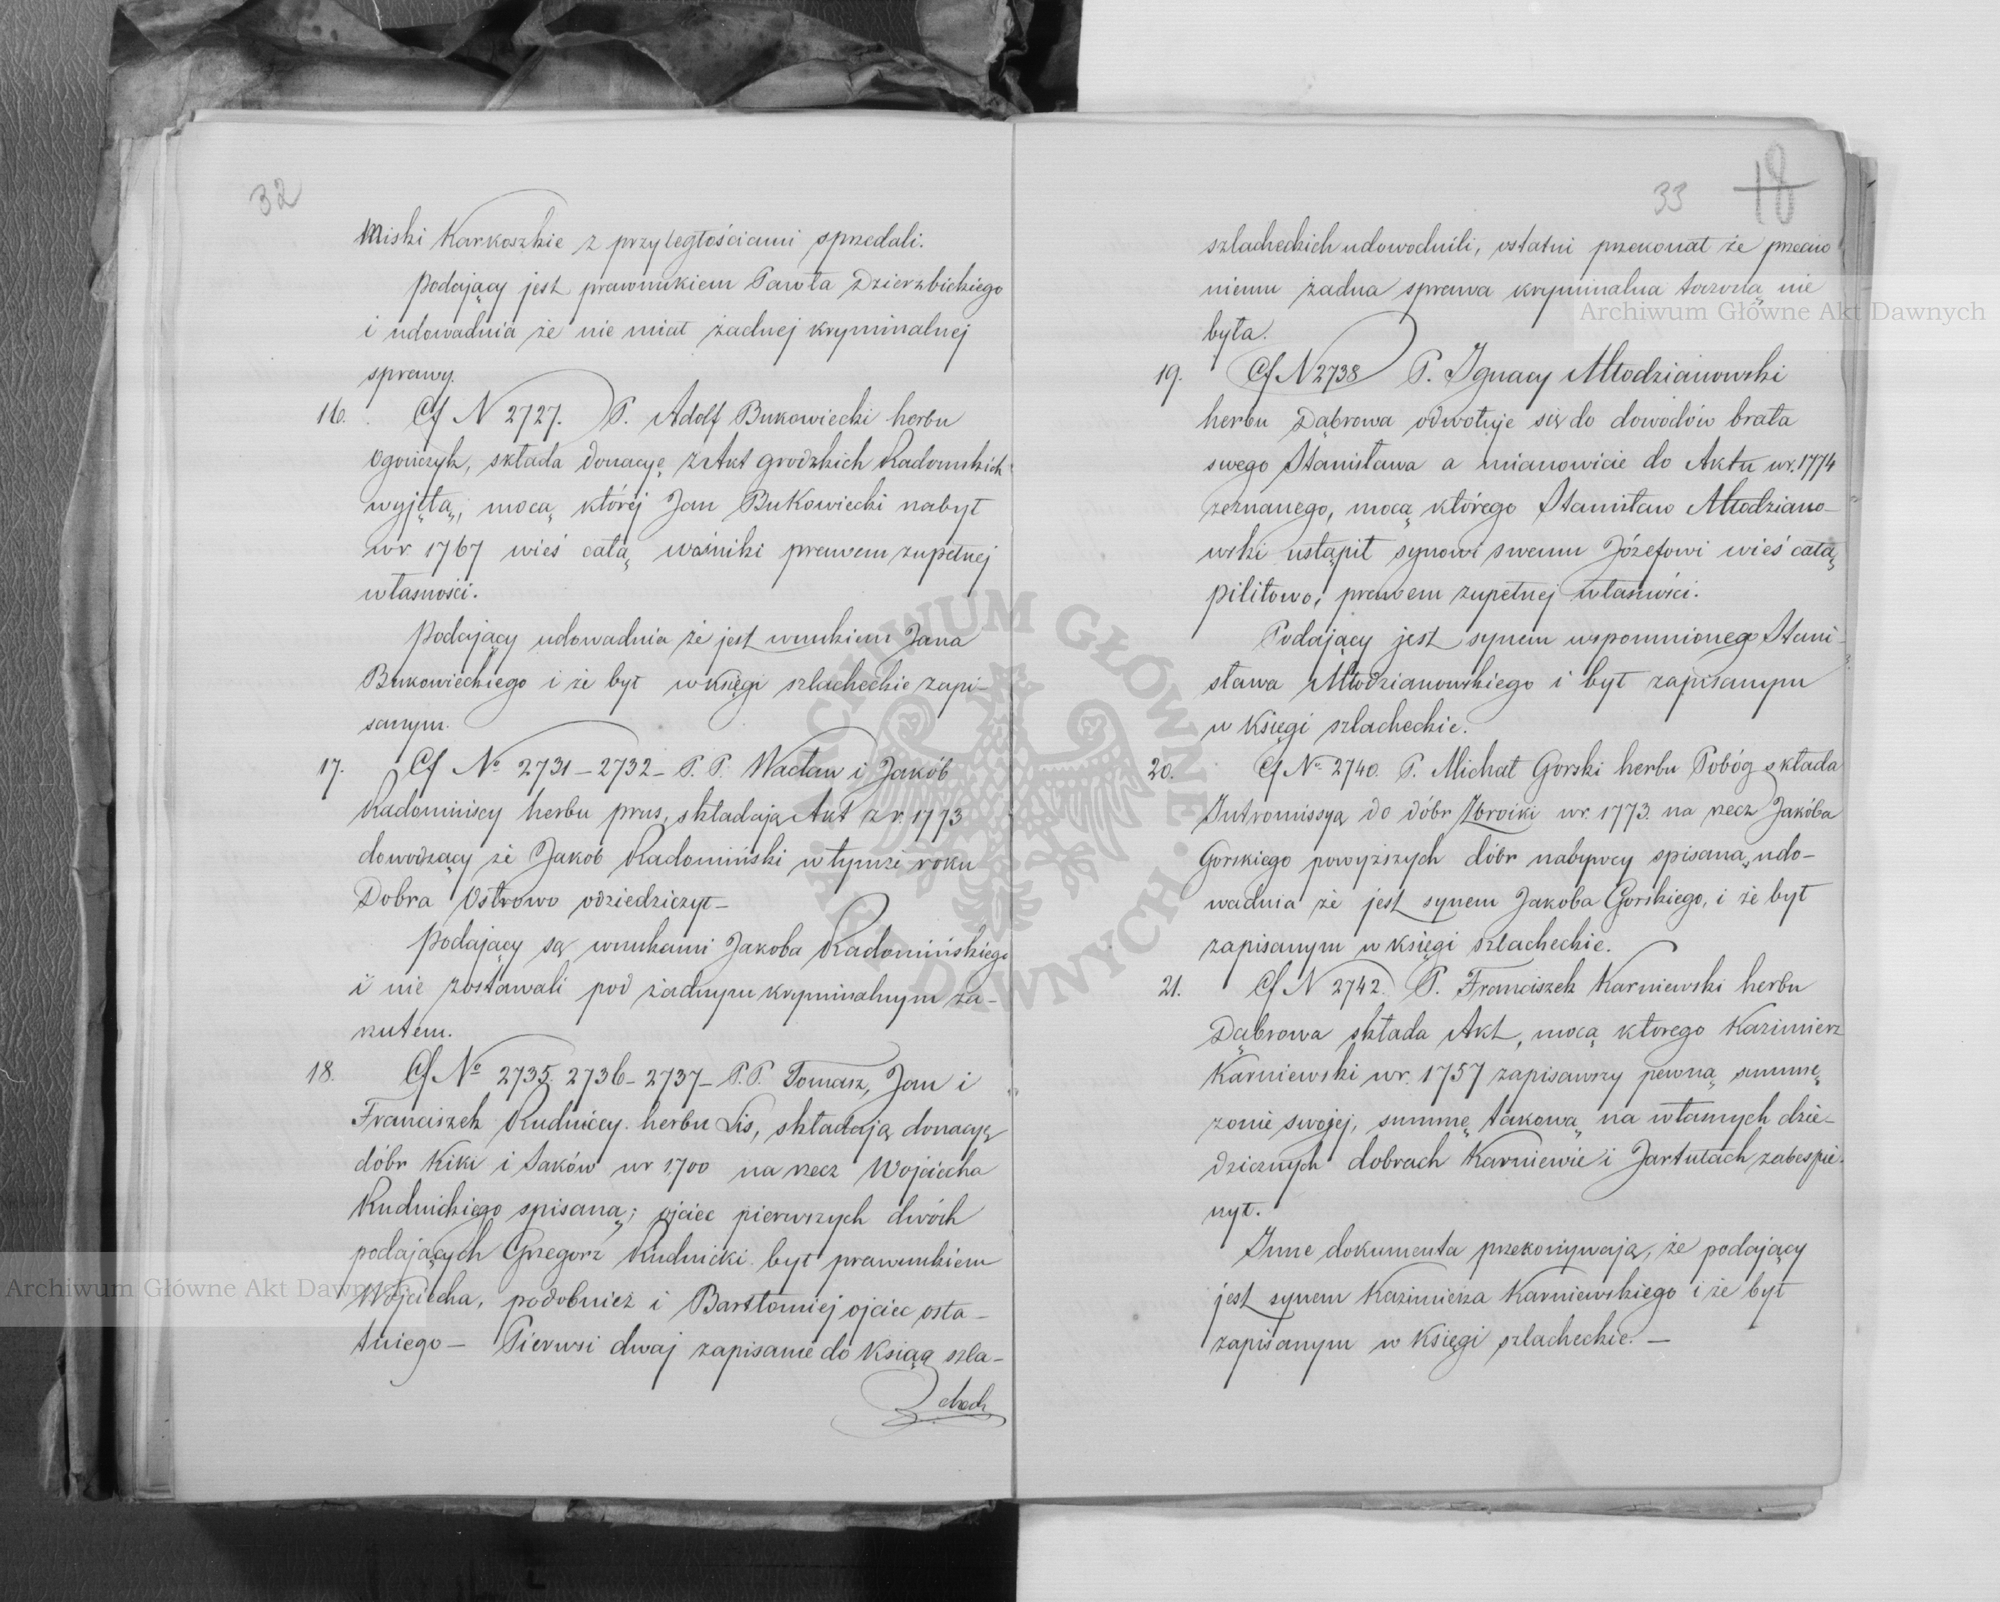 32
Miski Karkoszkie z przyległościami sprzedali.
Podający jest prawnukiem Pawła Dzierzbickiego
i udowadnia że nie miał żadnej kryminalnej
sprawy.
16. Cf N 2727. P. Adolf Bukowiecki herbu
Ogończyk, składa donacyę z Akt grodzkich Radomskich
wyjętą, mocą której Jan Bukowiecki nabył
w r. 1767 wieś całą Woźniki prawem zupełnej
własności.
Podający udowadnia że jest wnukiem Jana
Bukowieckiego i że był w księgi szlacheckie zapi-
sanym.
17. Cf No 2731-2732- P.P. Wacław i Jakób
Radomińscy herbu prus, składają Akt z r. 1773
dowodzący że Jakób Radomiński w tymże roku
Dobra Ostrowo odziedziczył-
Podający są wnukami Jakoba Radomińskiego
i nie zostawali pod żadnym kryminalnym za-
rzutem.
18. Cf No 2735. 2736- 2737- P.P. Tomasz, Jan i
Franciszek Rudniccy herbu Lis, składają donacyą
dóbr Kiki i Saków w r 1700 na rzecz Wojciecha
Rudnickiego spisaną; ojciec pierwszych dwóch
podających Grzegorz Rudnicki był prawnukiem
Wojciecha, podobnież i Bartłomiej ojciec osta-
tniego- Pierwsi dwaj zapisanie do Ksiąg szla-
check
33 18
szlacheckich udowodnili, ostatni przekonał że przeciw
niemu żadna sprawa kryminalna toczoną nie
była.
19. Cf N 2738 P. Ignacy Młodzianowski
herbu Dąbrowa odwołuje się do dowodów brata
swego Stanisława a mianowicie do Aktu w r. 1774
zeznanego, mocą którego Stanisław Młodziano-
wski ustąpił synowi swemu Józefowi wieś całą
Pilitowo, prawem zupełnej własności.
Podający jest synem wspomnionego Stani-
sława Młodzianowskiego i był zapisanym
w Księgi szlacheckie.
20. Cf No 2740. P. Michał Gorski herbu Pobóg składa
Intromissyą do dóbr Zbroiki w r. 1773. na rzecz Jakóba
Gorskiego powyższych dóbr nabywcy spisaną, udo-
wadnia że jest synem Jakoba Gorskiego, i że był
zapisanym w księgi szlacheckie.
21. Cf N 2742. P. Franciszek Karniewski herbu
Dąbrowa składa Akt, mocą ktorego Kazimierz
Karniewski w r. 1757 zapisawszy pewną summę
żonie swojej, summę takową na własnych dzie-
dzicznych dobrach Karniewie i Żartułach zabespie-
czył.
Inne dokumenta przekonywają, że podający
jest synem Kazimierza Karniewskiego i że był
zapisanym w Księgi szlacheckie. -
Archiwum Główne Akt Dawnych
Archiwum Główne Akt Dawnych
ARCHIWUM GŁÓWNE AKT DAWNYCH